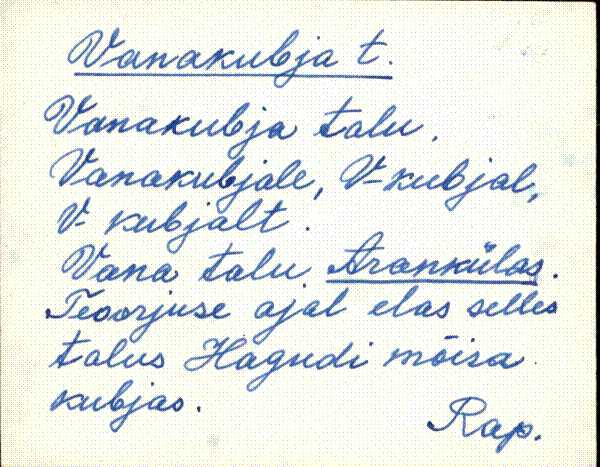 Vanakubja t.
Vanakubja talu.
Vanakubjale, V-kubjal,
V-kubjalt.
Vana talu Arankülas.
Teoorjuse ajal elas selles
talus Hagudi mõisa
kubjas.
Rap.